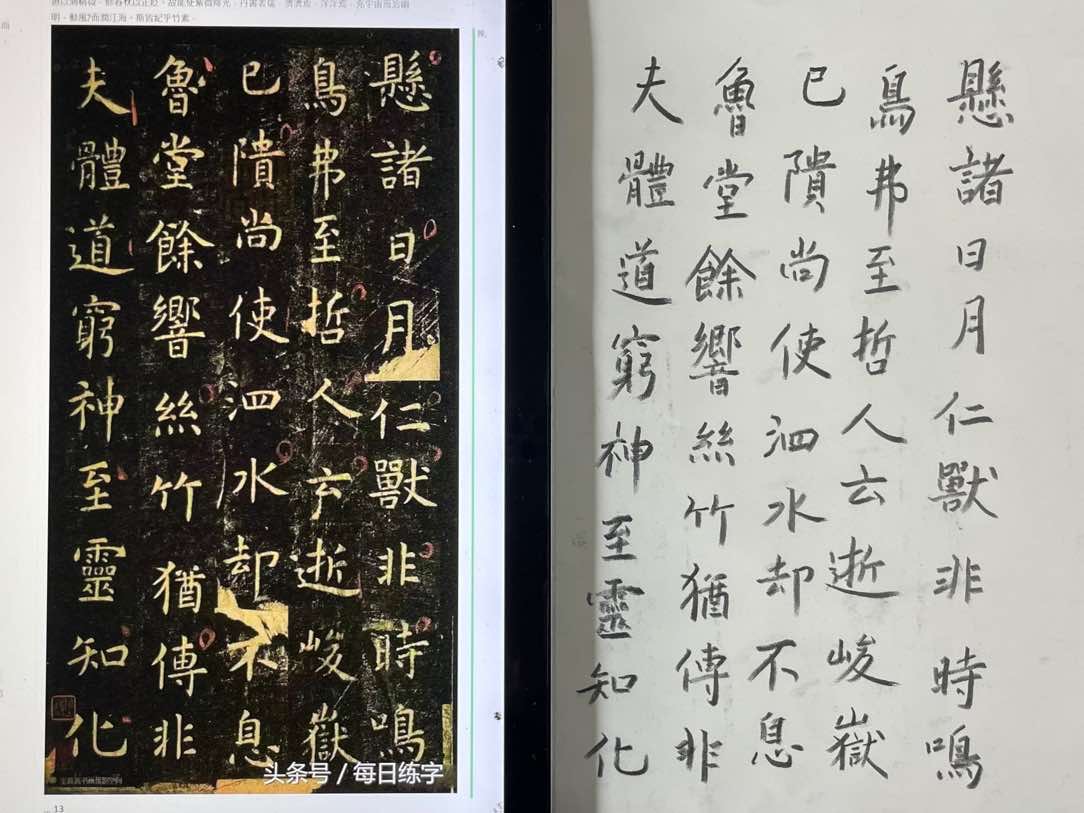 明。動風?而潤江海。斯皆紀乎竹素。
懸諸日月仁獸非時鳴
鳥弗至哲人云逝峻嶽
已隤尚使泗水却不息
魯堂餘響絲竹猶傳非
夫體道窮神至靈知化
头条号 / 每日练字
13
懸諸日月仁獸非時鳴
鳥弗至哲人云逝峻嶽
已隤尚使泗水却不息
魯堂餘響絲竹猶傳非
夫體道窮神至靈知化